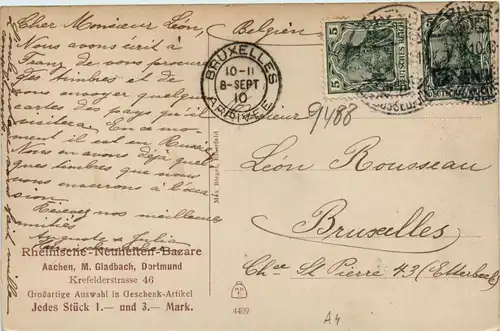 Cher Monsieur Léon,
Nous avons écrit à
Franz de vous procurer
des timbres et de
vous envoyer quelques
cartes des pays qu'il
visitera. En ce mo-
ment il est en Russie
Nous en avons déjà quel-
ques timbres que nous
vous enverrons à l'occa-
sion.
Recevez nos meilleures
amitiés
Julia
Belgien
BRUXELLES
10-11
8-SEPT
10
ARRIVÉE
5
DEUTSCHES REICH
9488
Monsieur
Léon Rousseau
Bruxelles
Chée St Pierre 43 (Etterbeek)
Rheinische-Neuheiten-Bazare
Aachen, M. Gladbach, Dortmund
Krefelderstrasse 46
Großartige Auswahl in Geschenk-Artikel
Jedes Stück 1.— und 3.— Mark.
Max Biegel, Elberfeld
4409
A4